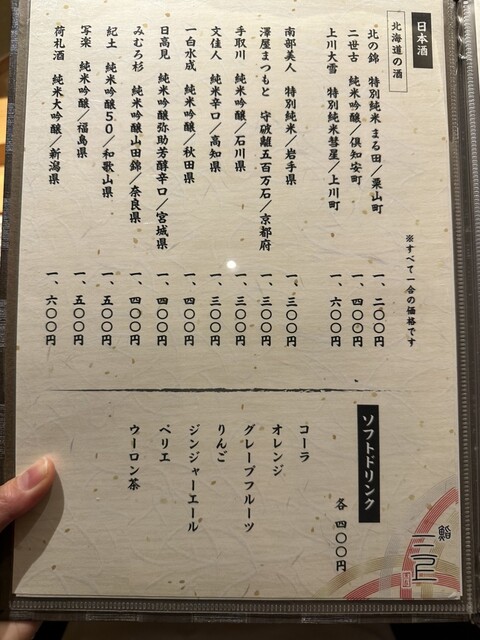 日本酒
北海道の酒
※すべて一合の価格です
北の錦 特別純米 まる田／栗山町 一、二〇〇円
二世古 純米吟醸／倶知安町 一、四〇〇円
上川大雪 特別純米彗星／上川町 一、六〇〇円
南部美人 特別純米／岩手県 一、三〇〇円
澤屋まつもと 守破離五百万石／京都府 一、三〇〇円
手取川 純米吟醸／石川県 一、三〇〇円
文佳人 純米辛口／高知県 一、三〇〇円
一白水成 純米吟醸／秋田県 一、四〇〇円
日高見 純米吟醸弥助芳醇辛口／宮城県 一、四〇〇円
みむろ杉 純米吟醸山田錦／奈良県 一、四〇〇円
紀土 純米吟醸50／和歌山県 一、五〇〇円
写楽 純米吟醸／福島県 一、五〇〇円
荷札酒 純米大吟醸／新潟県 一、六〇〇円
ソフトドリンク
各 四〇〇円
コーラ
オレンジ
グレープフルーツ
りんご
ジンジャーエール
ペリエ
ウーロン茶
鮨